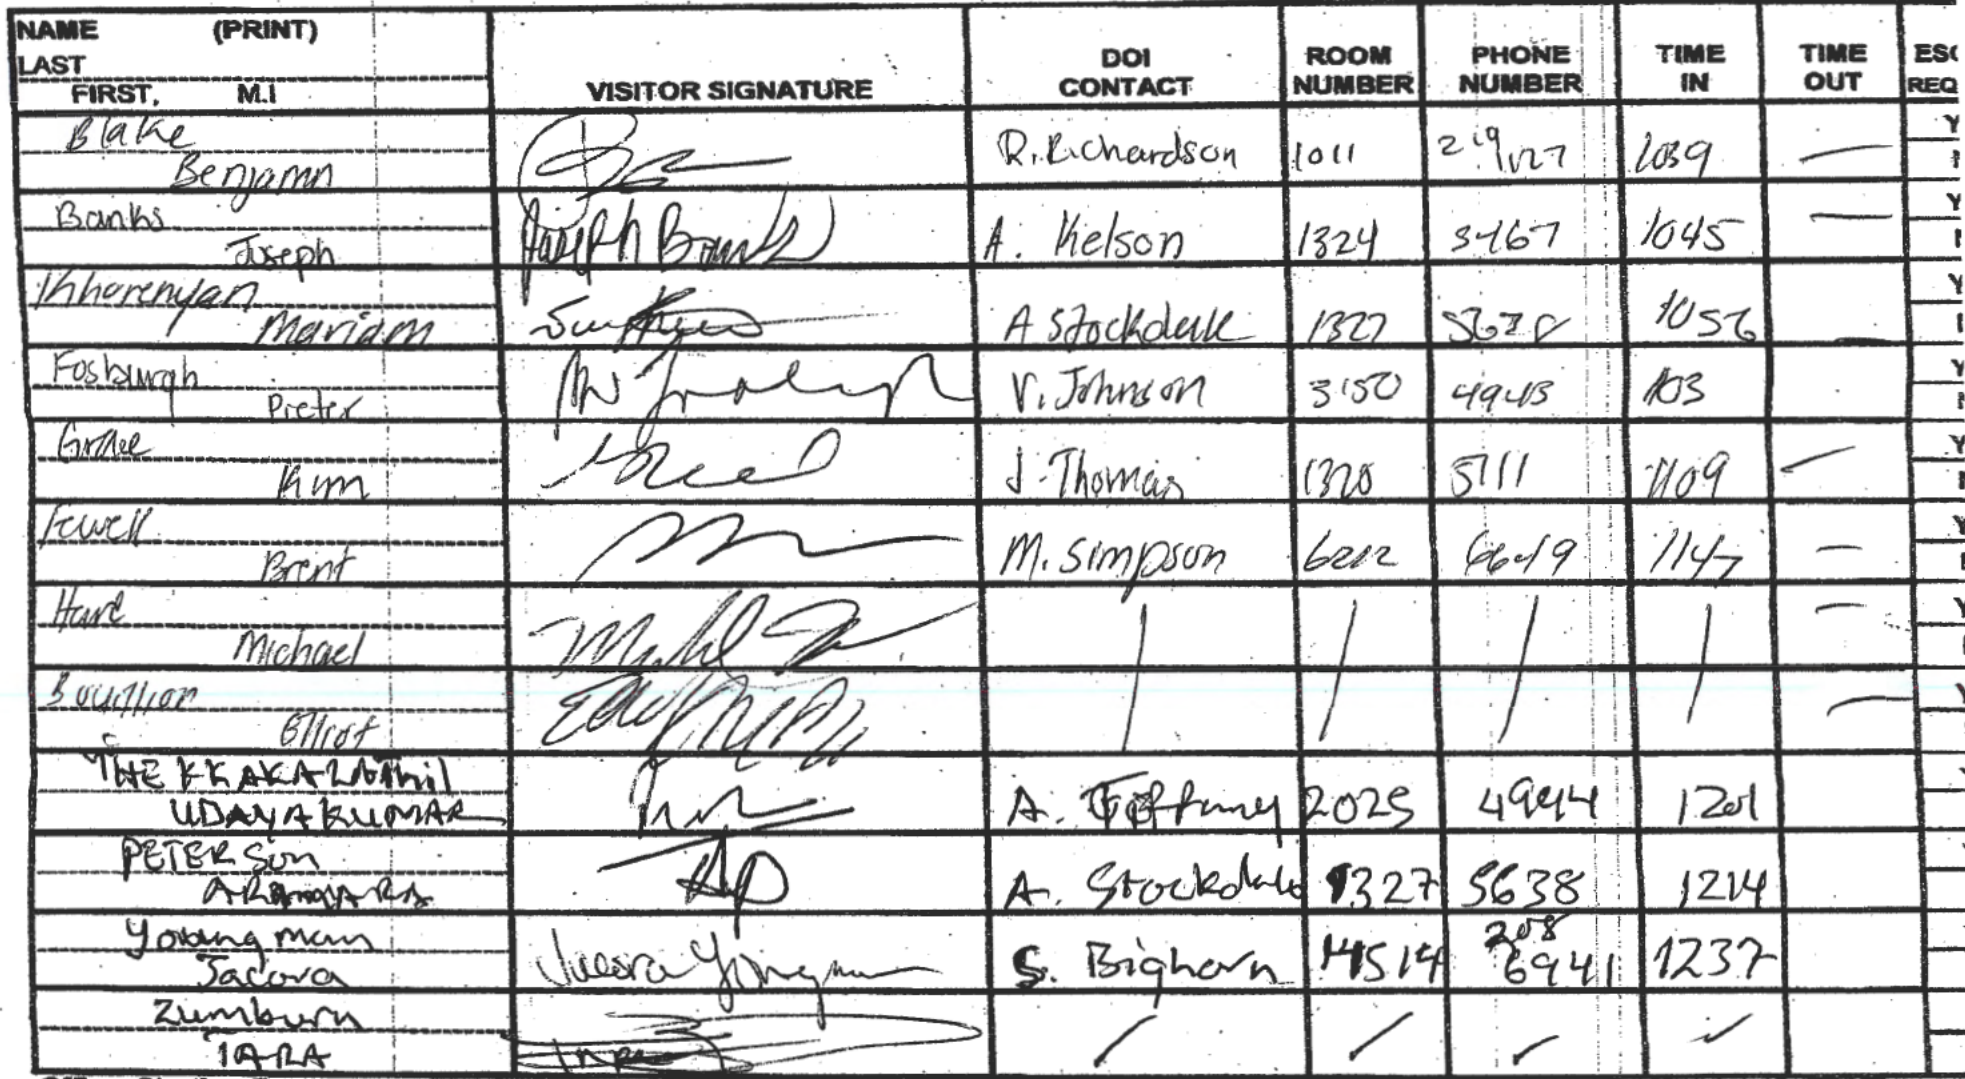 NAME (PRINT)
LAST
FIRST, M.I
VISITOR SIGNATURE
DOI CONTACT
ROOM NUMBER
PHONE NUMBER
TIME IN
TIME OUT
ESC
REQ
Blake
Benjamn R. Richardson 1011 1039 — Y
Banks
Joseph Joseph Banks A. Kelson 1324 3467 1045 — Y
Kharenyan
Mariam A Stockdale 1327 5638 1056 — Y
Fosburgh
Pieter V. Johnson 3150 4943 1103 Y
Grace
Kim J. Thomas 1320 5111 1109 — Y
Fewell
Brent M. Simpson 6212 6649 1147 — Y
Hare
Michael / / / / — Y
Bouillion
Elliot / / / / —
UDAYAKUMAR A. Tiffany 2025 4994 1201
PETERSON
A. Stockdale 1327 5638 1214
Youngman
Jacova S. Bighorn 14514 208 6941 1237
Zumburn
TARA / / / /